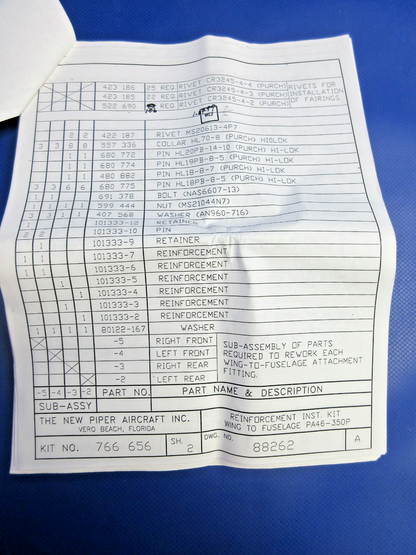 423 186 25 REQ RIVET CR3245-4-4 (PURCH) RIVETS FOR
423 185 22 REQ RIVET CR3245-4-3 (PURCH) INSTALLATION
522 690 REQ RIVET CR3245-4-2 (PURCH) OF FAIRINGS
2 2 422 187 RIVET MS20613-4P7
3 3 8 8 557 336 COLLAR HL70-8 (PURCH) HIOLOK
1 1 680 772 PIN HL20PB-14-10 (PURCH) HI-LOK
1 1 680 774 PIN HL19PB-8-5 (PURCH) HI-LOK
1 1 480 882 PIN HL18-8-7 (PURCH) HI-LOK
3 3 6 6 680 775 PIN HL18PB-8-5 (PURCH) HI-LOK
1 1 691 378 BOLT (NAS6607-13)
1 1 1 1 599 444 NUT (MS21044N7)
3 3 1 1 407 568 WASHER (AN960-716)
101333-12 RETAINER
2 2 101333-10 PIN
1 1 101333-9 RETAINER
1 1 101333-7 REINFORCEMENT
1 1 101333-6 REINFORCEMENT
1 101333-5 REINFORCEMENT
1 101333-4 REINFORCEMENT
1 101333-3 REINFORCEMENT
1 101333-2 REINFORCEMENT
1 1 1 1 80122-167 WASHER
-5 RIGHT FRONT SUB-ASSEMBLY OF PARTS
-4 LEFT FRONT REQUIRED TO REWORK EACH
-3 RIGHT REAR WING-TO-FUSELAGE ATTACHMENT
-2 LEFT REAR FITTING.
-5 -4 -3 -2 PART NO. PART NAME & DESCRIPTION
SUB-ASSY
THE NEW PIPER AIRCRAFT INC. REINFORCEMENT INST. KIT
VERO BEACH, FLORIDA WING TO FUSELAGE PA46-350P
KIT NO. 766 656 SH. 2 DWG. NO. 88262 A